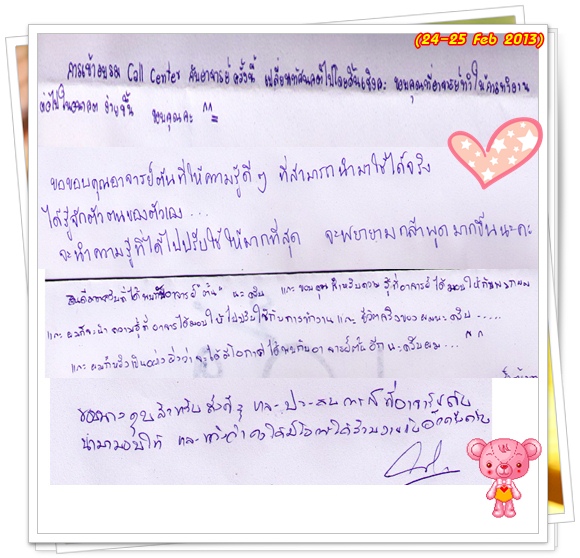 (24-25 Feb 2013)
การเข้าอบรม Call Center กับอาจารย์ครั้งนี้ เปลี่ยนทัศนคติไปโดยสิ้นเชิงค่ะ ขอบคุณที่อาจารย์ทำให้การทำงาน
ต่อไปในอนาคต ง่ายขึ้น ขอบคุณค่ะ ^^
ขอขอบคุณอาจารย์ตันที่ให้ความรู้ดีๆ ที่สามารถนำมาใช้ได้จริง
ได้รู้จักตัวตนของตัวเอง...
จะนำความรู้ที่ได้ไปปรับใช้ให้มากที่สุด จะพยายามกล้าพูดมากขึ้นนะคะ
ยินดีมากครับที่ได้พบกับอาจารย์ นะครับ และขอบคุณสำหรับความรู้ที่อาจารย์ได้มอบให้กับพวกผม
และผมก็จะนำความรู้ที่อาจารย์ได้มอบให้ไปปรับใช้กับการทำงาน และชีวิตจริงของผมนะครับ.....
และผมก็หวังเป็นอย่างยิ่งว่าจะได้มีโอกาสได้พบกับอาจารย์ตันอีกนะครับผม... ^^
ขอบคุณสำหรับสิ่งดีๆ และประสบการณ์ที่อาจารย์
นำมามอบให้ และหวังว่าคงได้มีโอกาสได้ร่วมงานกันอีก